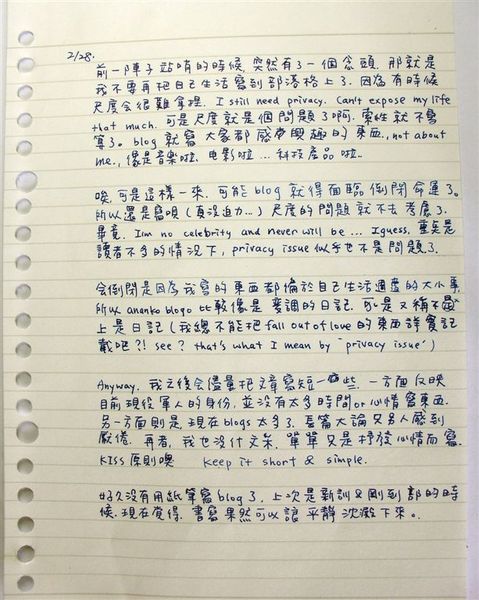 2/28.
前一陣子站哨的時候, 突然有了一個念頭. 那就是
我不要再把自己生活寫到部落格上了. 因為有時候
尺度會很難拿捏. I still need privacy. Can't expose my life
that much. 可是尺度就是個問題了啊. 索性就不寫
算了. blog 就寫大家都感興趣的東西., not about
me., 像是音樂啦. 电影啦 ... 科技產品啦..
唉, 可是這樣一來, 可能 blog 就得面臨倒閉命運了。
所以還是寫唄 (真沒迫力...) 尺度的問題就不去考慮了.
畢竟. I'm no celebrity and never will be ... I guess. 重點是
讀者不多的情況下, privacy issue 似乎也不是問題了.
會倒閉是因為我寫的東西都偏於自己生活週遭的大小事,
所以 ananko blogo 比較像是變調的日記. 可是又稱不
上是日記 (我總不能把 fall out of love 的東西詳實記
載吧?! see ? that's what I mean by "privacy issue")
Anyway. 我之後會儘量把文章寫短一些. 一方面反映
目前現役軍人的身份, 並沒有太多時間 or 心情寫東西.
另一方面則是. 現在 blogs 太多了. 長篇大論又另人感到
厭倦. 再者, 我也沒什文采. 單單只是抒發心情而寫.
KISS 原則噢 keep it short & simple.
好久沒有用紙筆寫 blog 了, 上次是新訓 & 剛到部的時
候. 現在覺得. 書寫果然可以讓平靜沈澱下來。